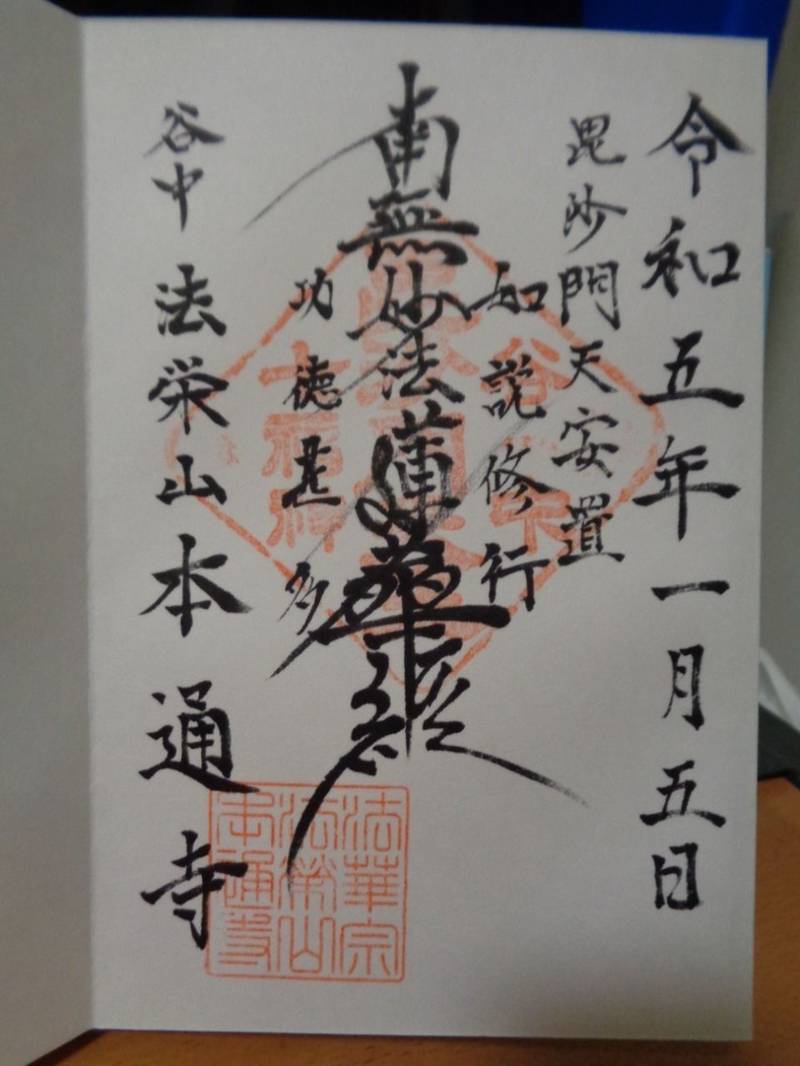 令和五年一月五日
毘沙門天安置
如説修行
南無妙法蓮華経
功徳甚多
谷中 法栄山本通寺
法華宗
法榮山
本通寺